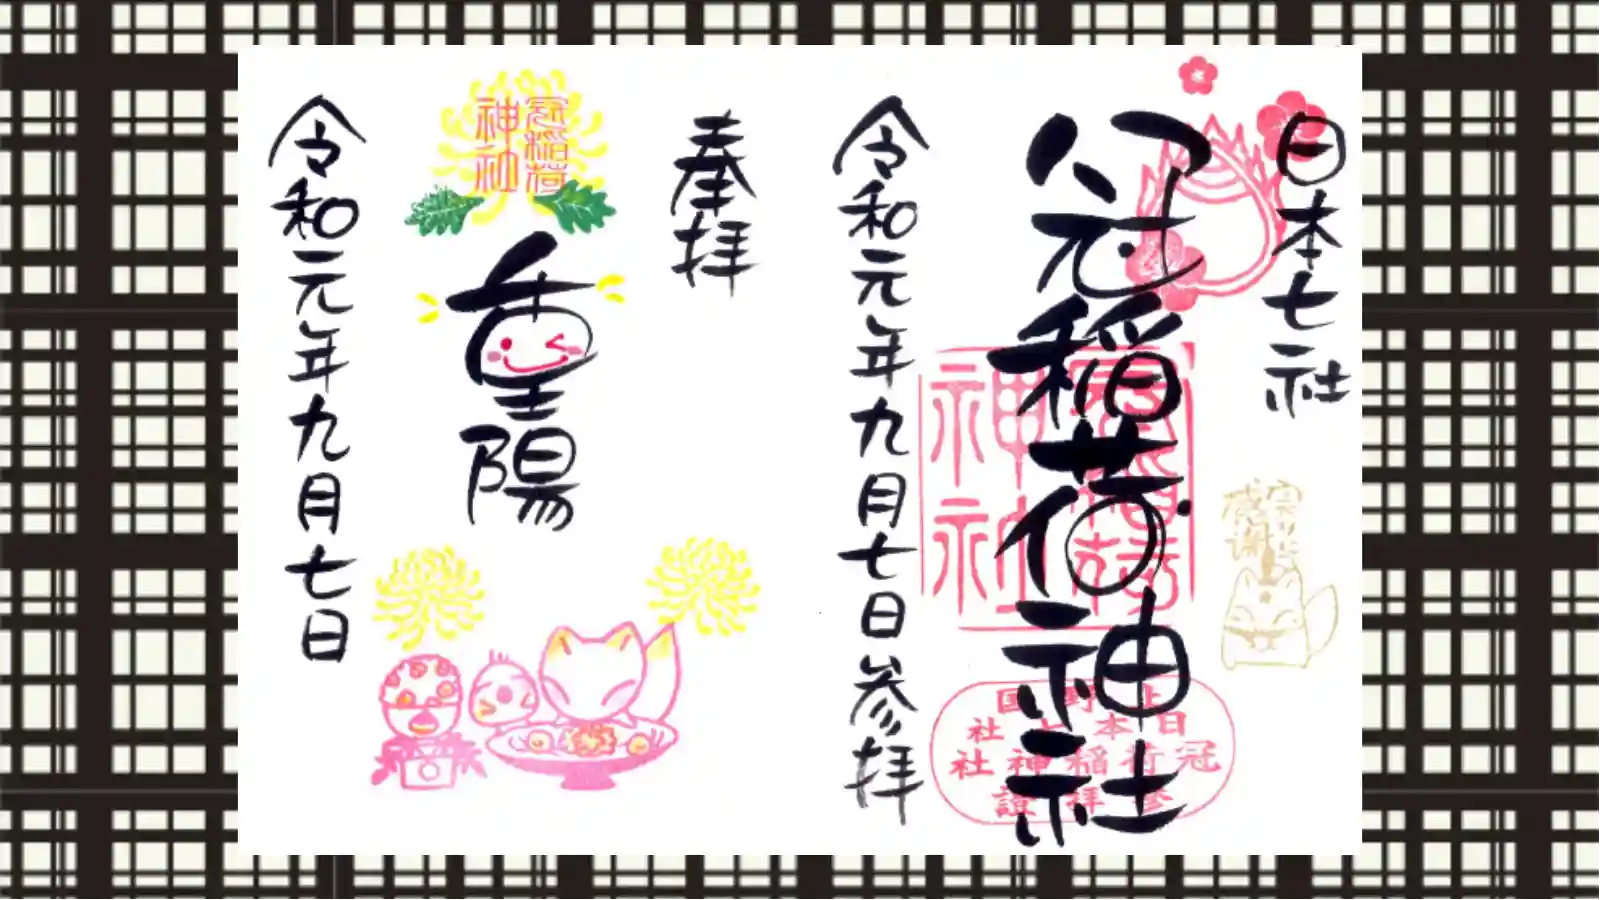 日本七社
冠稲荷神社
冠稲荷神社
上野国
日本七社
冠稲荷神社
参拝證
令和元年九月七日参拝
奉拝
冠稲荷
神社
重陽
令和元年九月七日